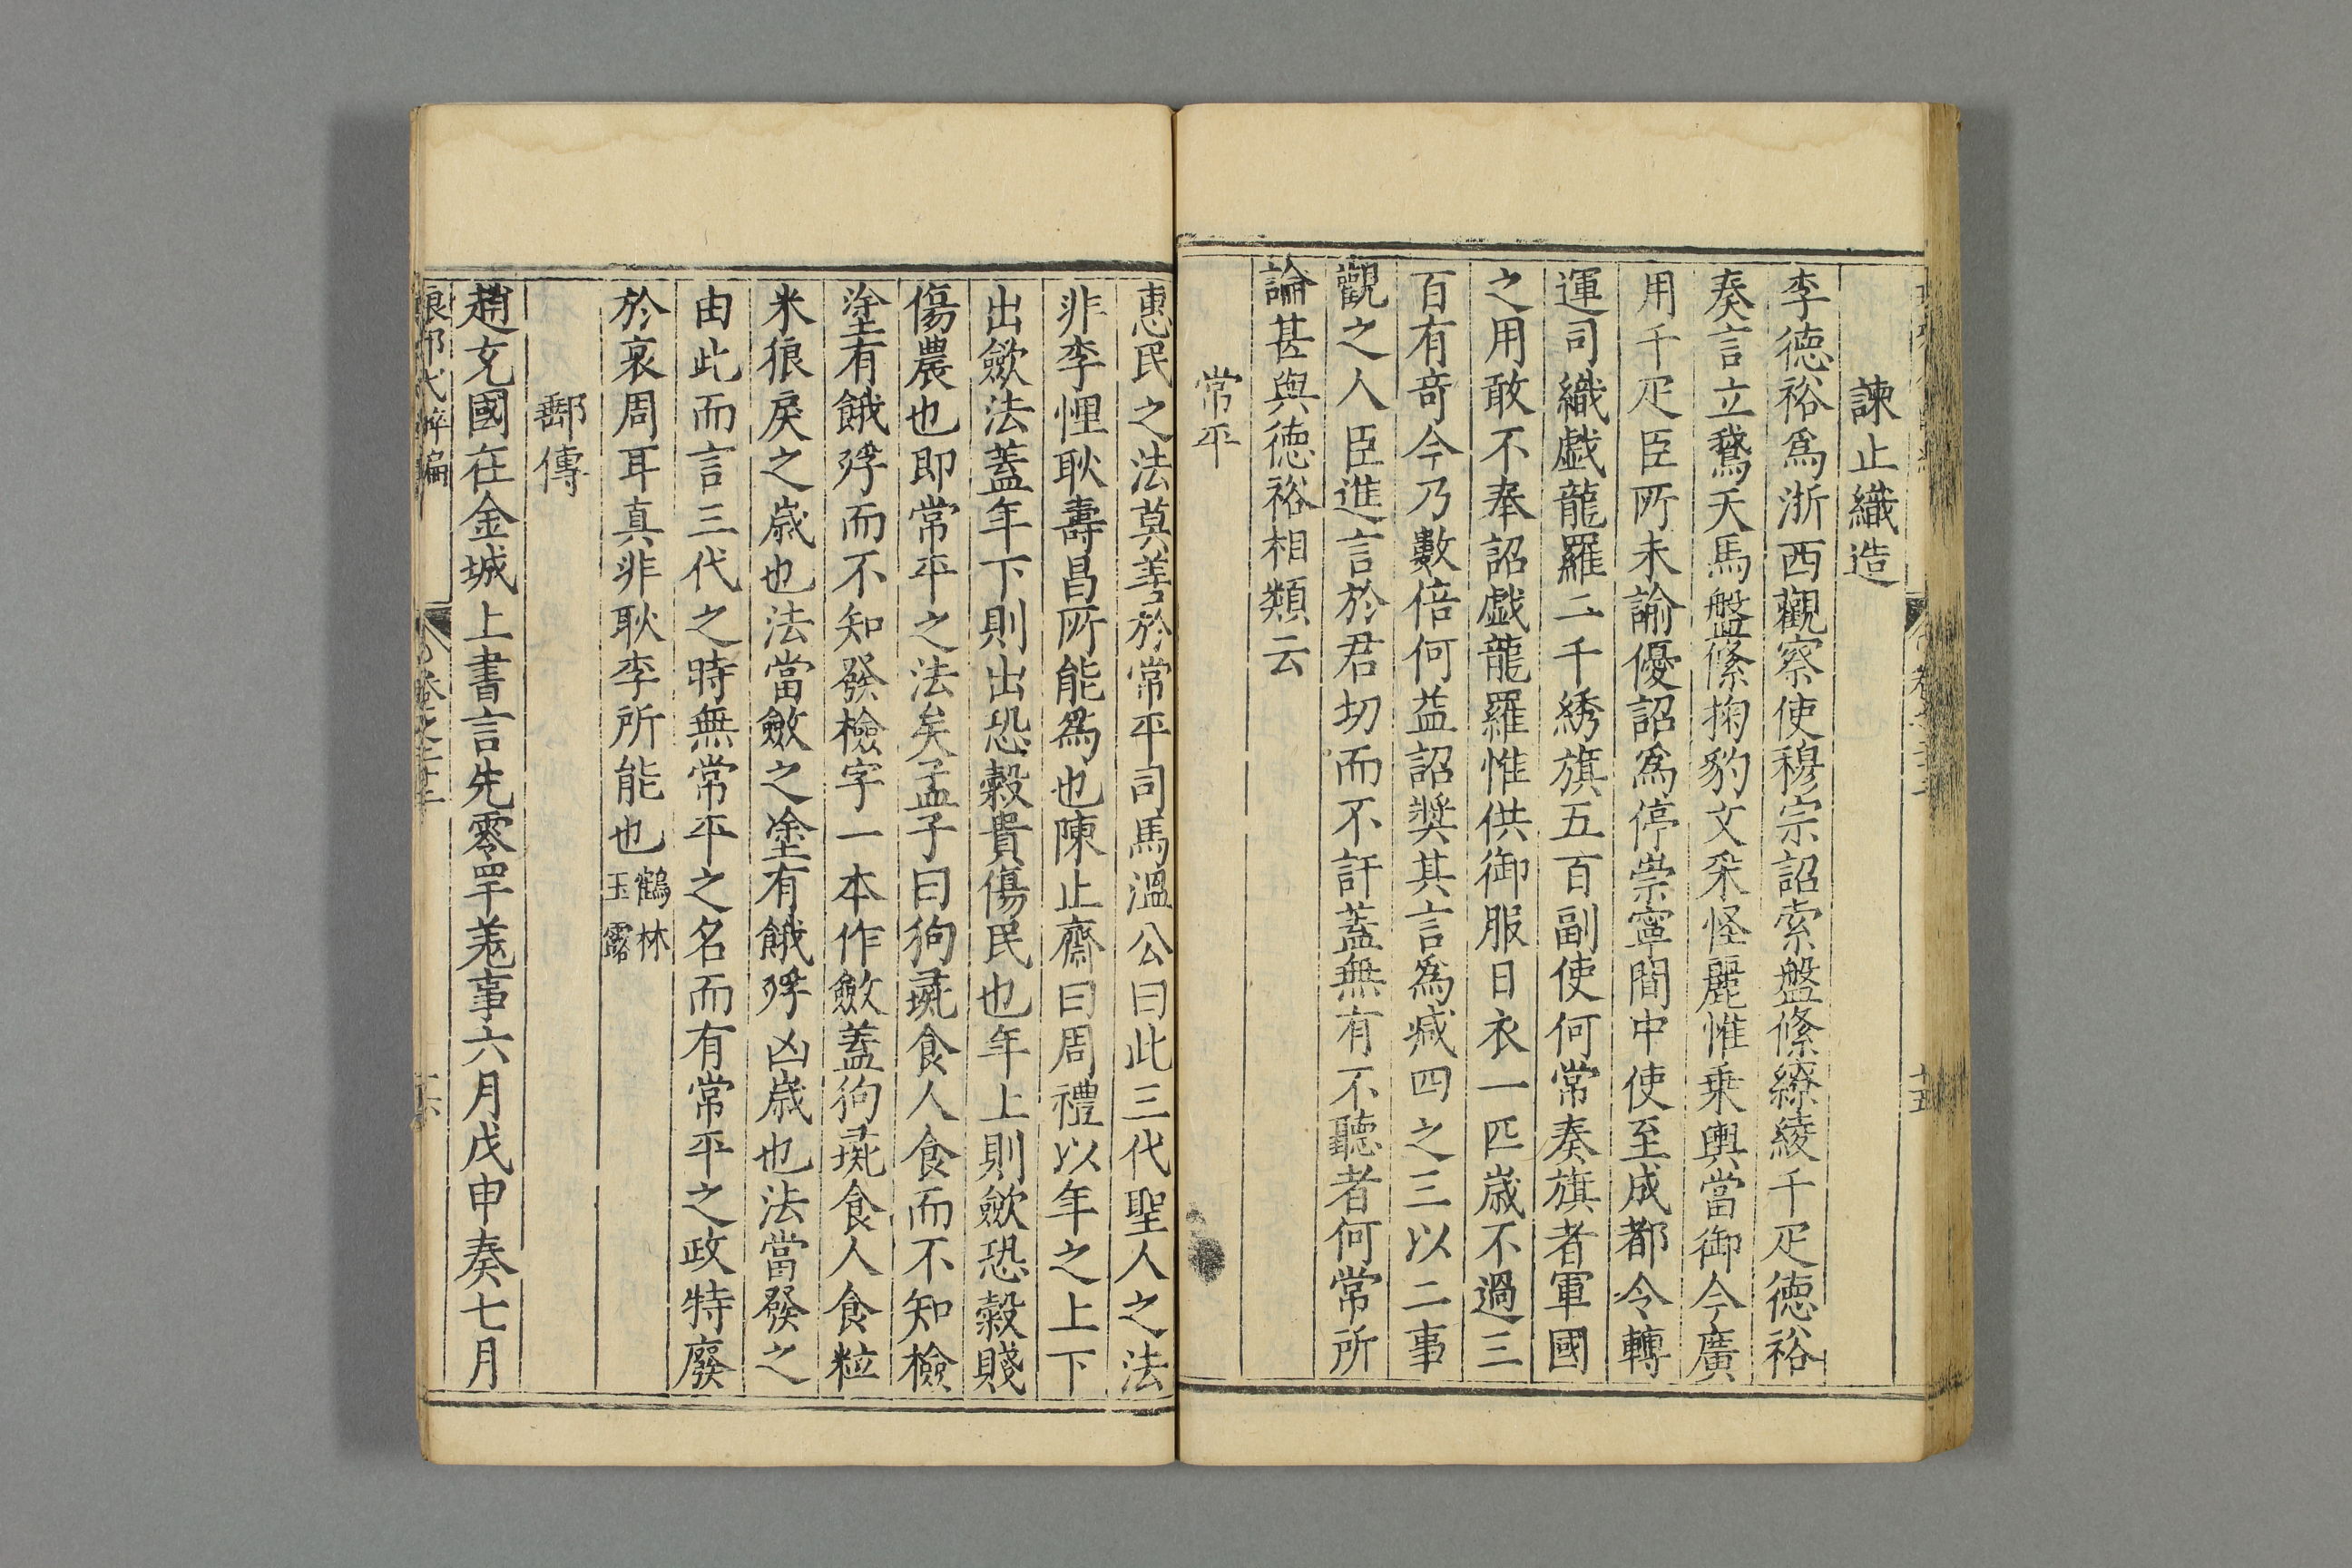 諫止織造
李德裕爲浙西觀察使穆宗詔索盤絛繚綾千疋德裕
奏言立鵞天馬盤絛掬豹文采怪麗惟乗輿當御今廣
用千疋臣所未諭優詔爲停崇寧間中使至成都令轉
運司織戯龍羅二千綉旗五百副使何常奏旗者軍國
之用敢不奉詔戯龍羅惟供御服日衣一匹歳不過三
百有竒今乃數倍何益詔奬其言爲减四之三以二事
觀之人臣進言於君切而不訐蓋無有不聽者何常所
論甚與德裕相類云
常平
惠民之法莫善於常平司馬溫公曰此三代聖人之法
非李悝耿壽昌所能爲也陳止齋曰周禮以年之上下
出歛法蓋年下則出恐穀貴傷民也年上則歛恐穀賤
傷農也即常平之法矣孟子曰狗彘食人食而不知檢
塗有餓殍而不知發檢字一本作斂蓋狗彘食人食粒
米狼戾之歳也法當斂之塗有餓殍凶歳也法當發之
由此而言三代之時無常平之名而有常平之政特廢
於衰周耳真非耿李所能也鶴林
玉露
郵傳
趙充國在金城上書言先零罕羗事六月戊申奏七月
琅邪代醉編
卷之三十